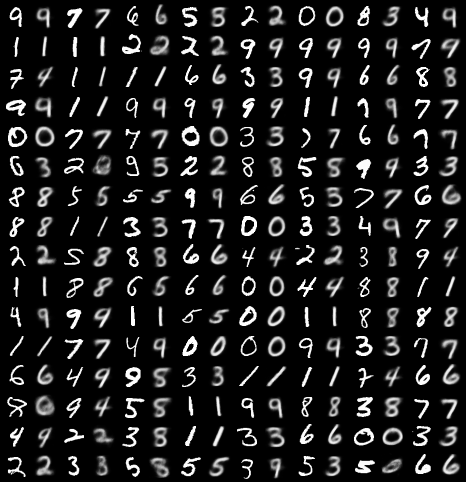 9 9 7 7 6 6 5 5 2 2 0 0 8 3 4 9
1 1 1 1 2 2 2 2 9 9 9 9 9 9 7 9
7 4 1 1 1 1 6 6 3 3 9 9 6 6 8 8
9 9 1 1 9 9 9 9 9 9 1 1 7 9 7 7
0 0 7 7 7 7 0 0 3 3 7 7 6 6 7 7
6 3 2 9 5 2 2 8 8 5 8 9 4 3 3
8 8 5 5 5 5 9 9 6 6 5 3 7 7 6 6
8 8 1 1 3 3 7 7 0 0 3 3 4 9 7 9
2 2 5 8 8 8 6 6 4 4 2 2 3 8 9 4
1 1 8 8 6 5 6 6 0 0 4 4 8 8 1 1
4 9 9 9 1 1 5 5 0 0 1 1 8 8 8 8
1 1 7 7 4 9 0 0 0 0 9 9 3 3 7 7
6 6 4 9 9 8 3 3 1 1 1 1 7 4 6 6
8 9 4 5 8 1 1 9 9 8 8 3 8 7 7
4 9 2 2 3 8 1 1 3 3 6 6 0 0 3 3
2 2 3 3 5 8 5 5 3 9 5 3 5 6 6